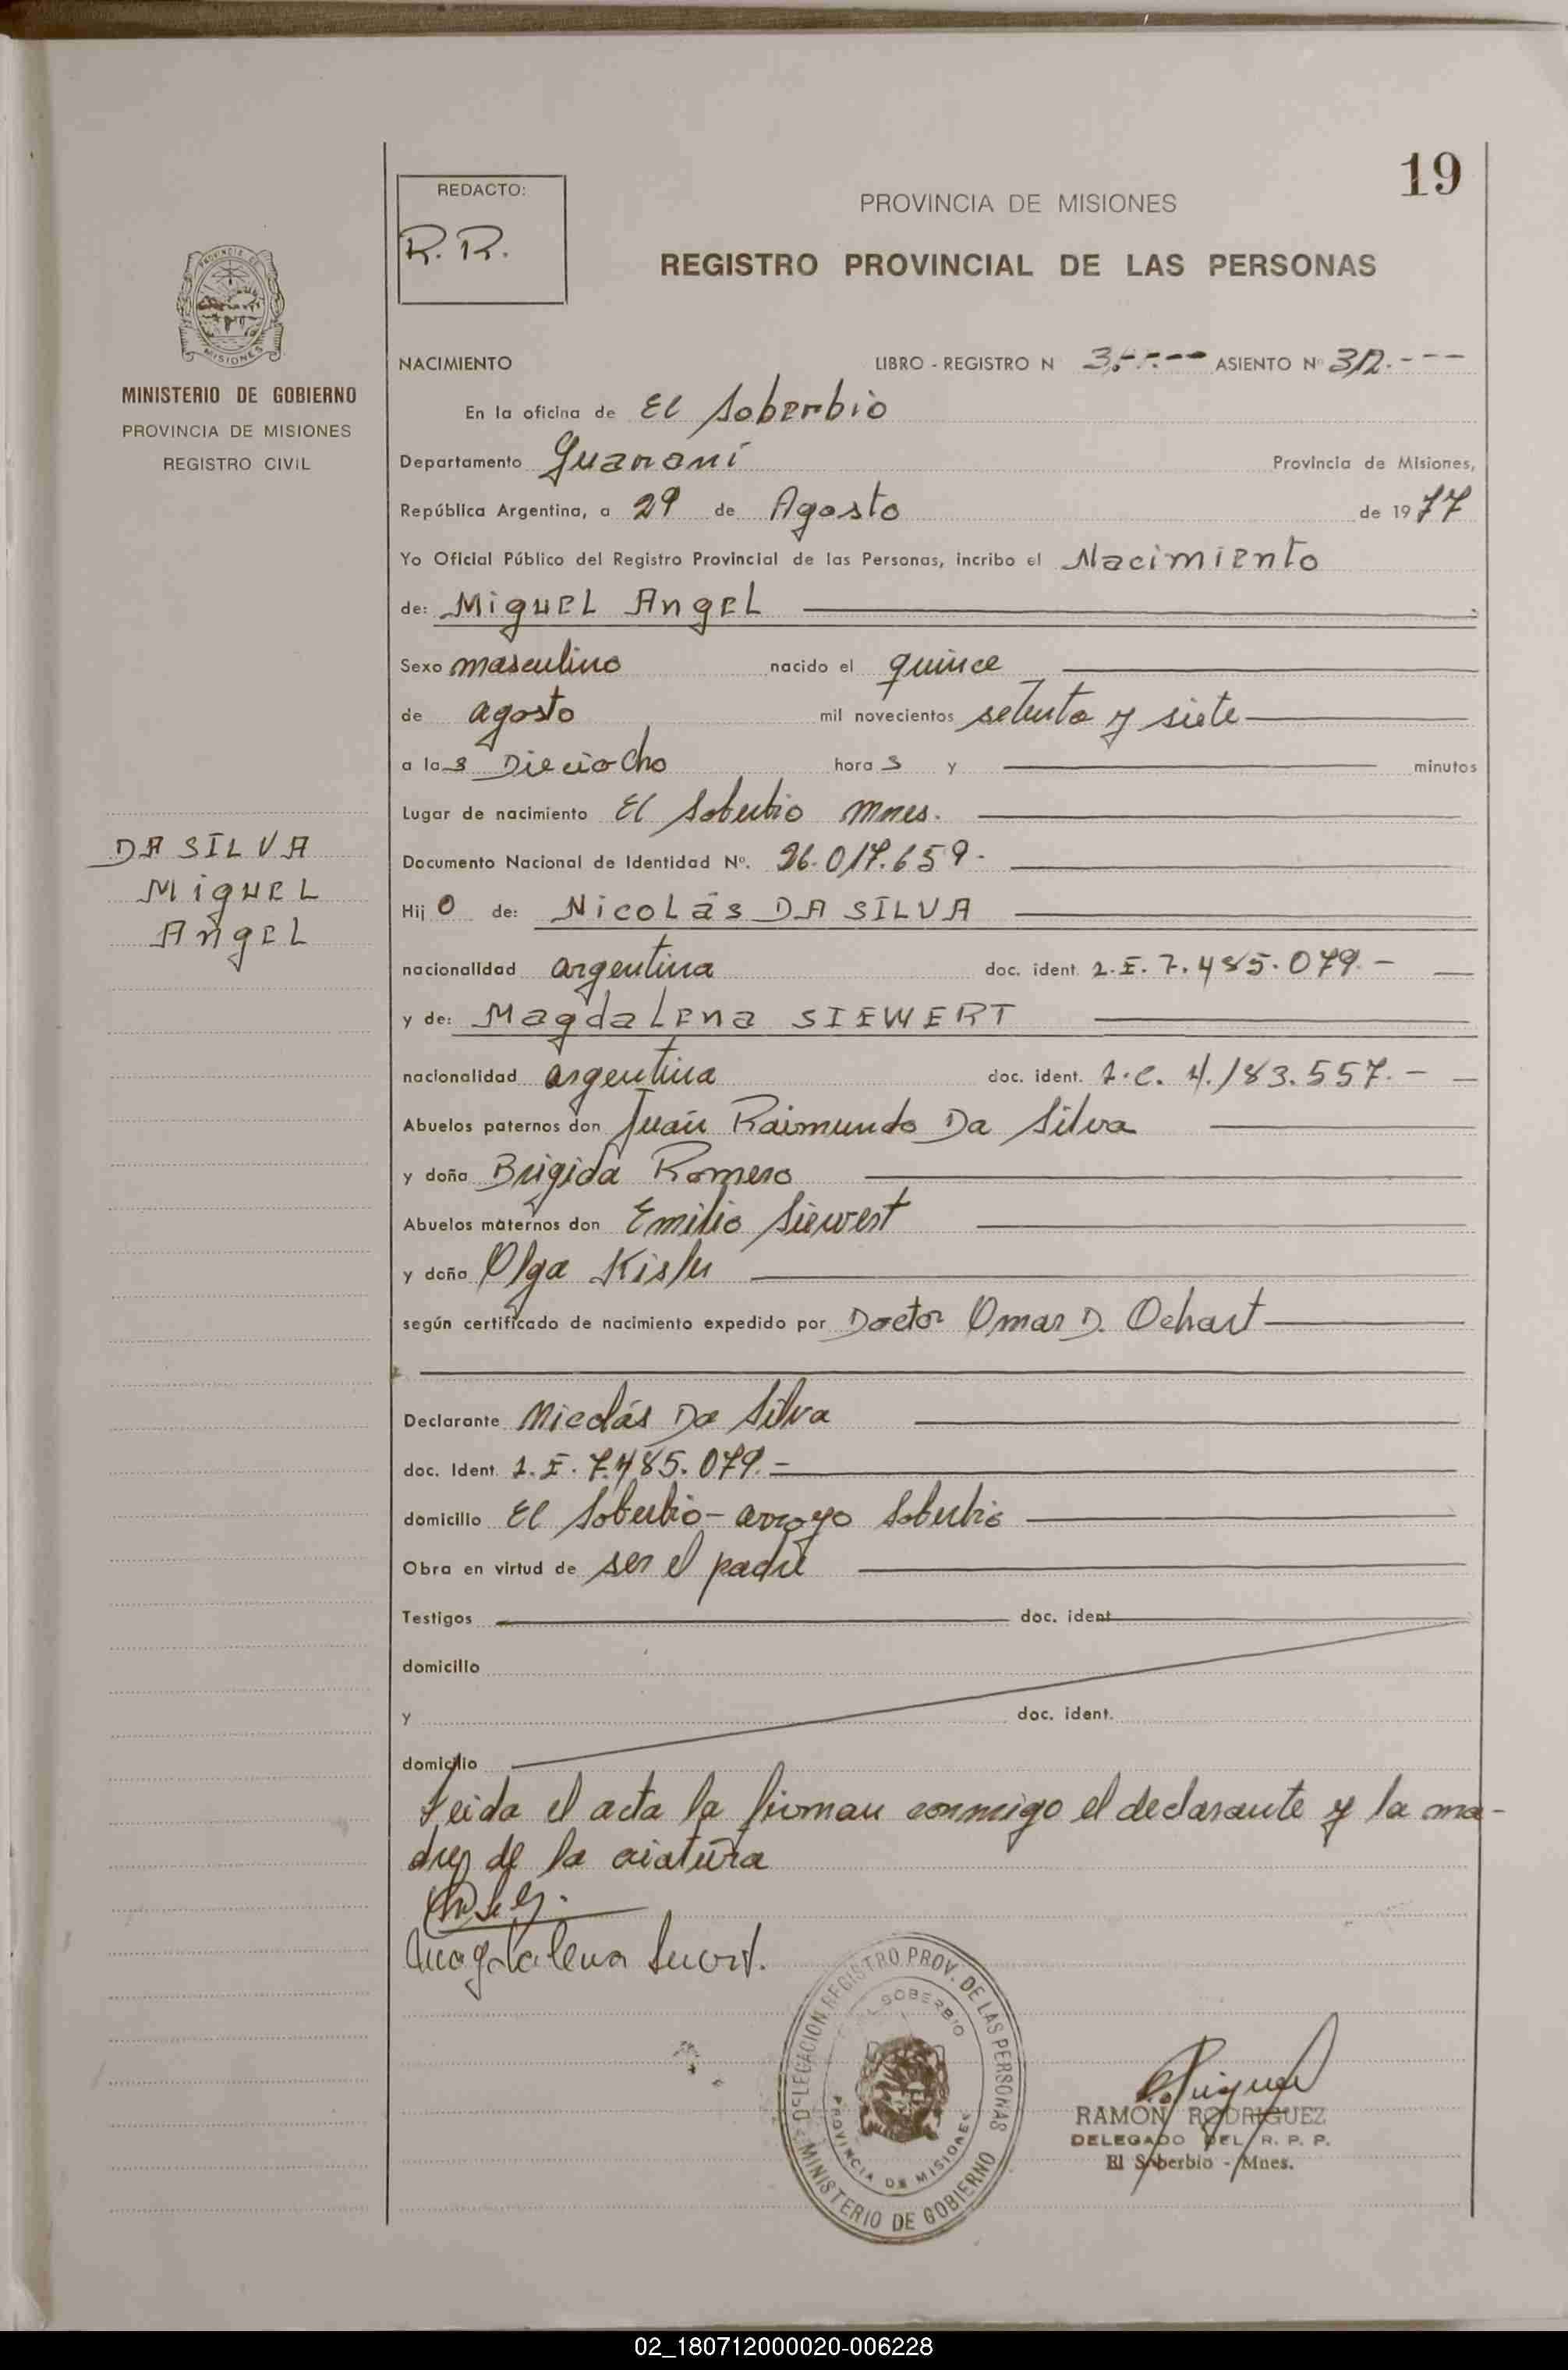 19
REDACTO:
R. R.
PROVINCIA DE MISIONES
REGISTRO PROVINCIAL DE LAS PERSONAS
PROVINCIA DE
MISIONES
MINISTERIO DE GOBIERNO
PROVINCIA DE MISIONES
REGISTRO CIVIL
DA SILVA
MiguEL
AngEL
NACIMIENTO LIBRO - REGISTRO N 3.---- ASIENTO Nº 312.---
En la oficina de El Soberbio
Departamento Guaraní Provincia de Misiones,
República Argentina, a 29 de Agosto de 1977
Yo Oficial Público del Registro Provincial de las Personas, incribo el Nacimiento
de: MiguEL AngEL
Sexo masculino nacido el quince
de agosto mil novecientos setenta y siete
a las Dieciocho horas y minutos
Lugar de nacimiento El Soberbio Mnes.
Documento Nacional de Identidad Nº. 26.017.659-
Hijo de: Nicolás DA SILVA
nacionalidad argentina doc. ident. L.E. 7.485.079.-
y de: Magdalena SIEWERT
nacionalidad argentina doc. ident. L.C. 4.183.557.-
Abuelos paternos don Juan Raimundo Da Silva
y doña Brigida Romero
Abuelos maternos don Emilio Siewert
y doña Olga
según certificado de nacimiento expedido por Doctor Omar D. Ochart
Declarante Nicolás Da Silva
doc. Ident. L.E. 7.485.079.-
domicilio El Soberbio - arroyo Soberbio
Obra en virtud de ser el padre
Testigos doc. ident
domicilio
y doc. ident.
domicilio
Leida el acta la firman conmigo el declarante y la ma-
dre de la criatura
Magdalena
DELEGACION REGISTRO PROV. DE LAS PERSONAS
EL SOBERBIO
PROVINCIA DE MISIONES
MINISTERIO DE GOBIERNO
RAMON RODRIGUEZ
DELEGADO DEL R. P. P.
El Soberbio - Mnes.
02_180712000020-006228